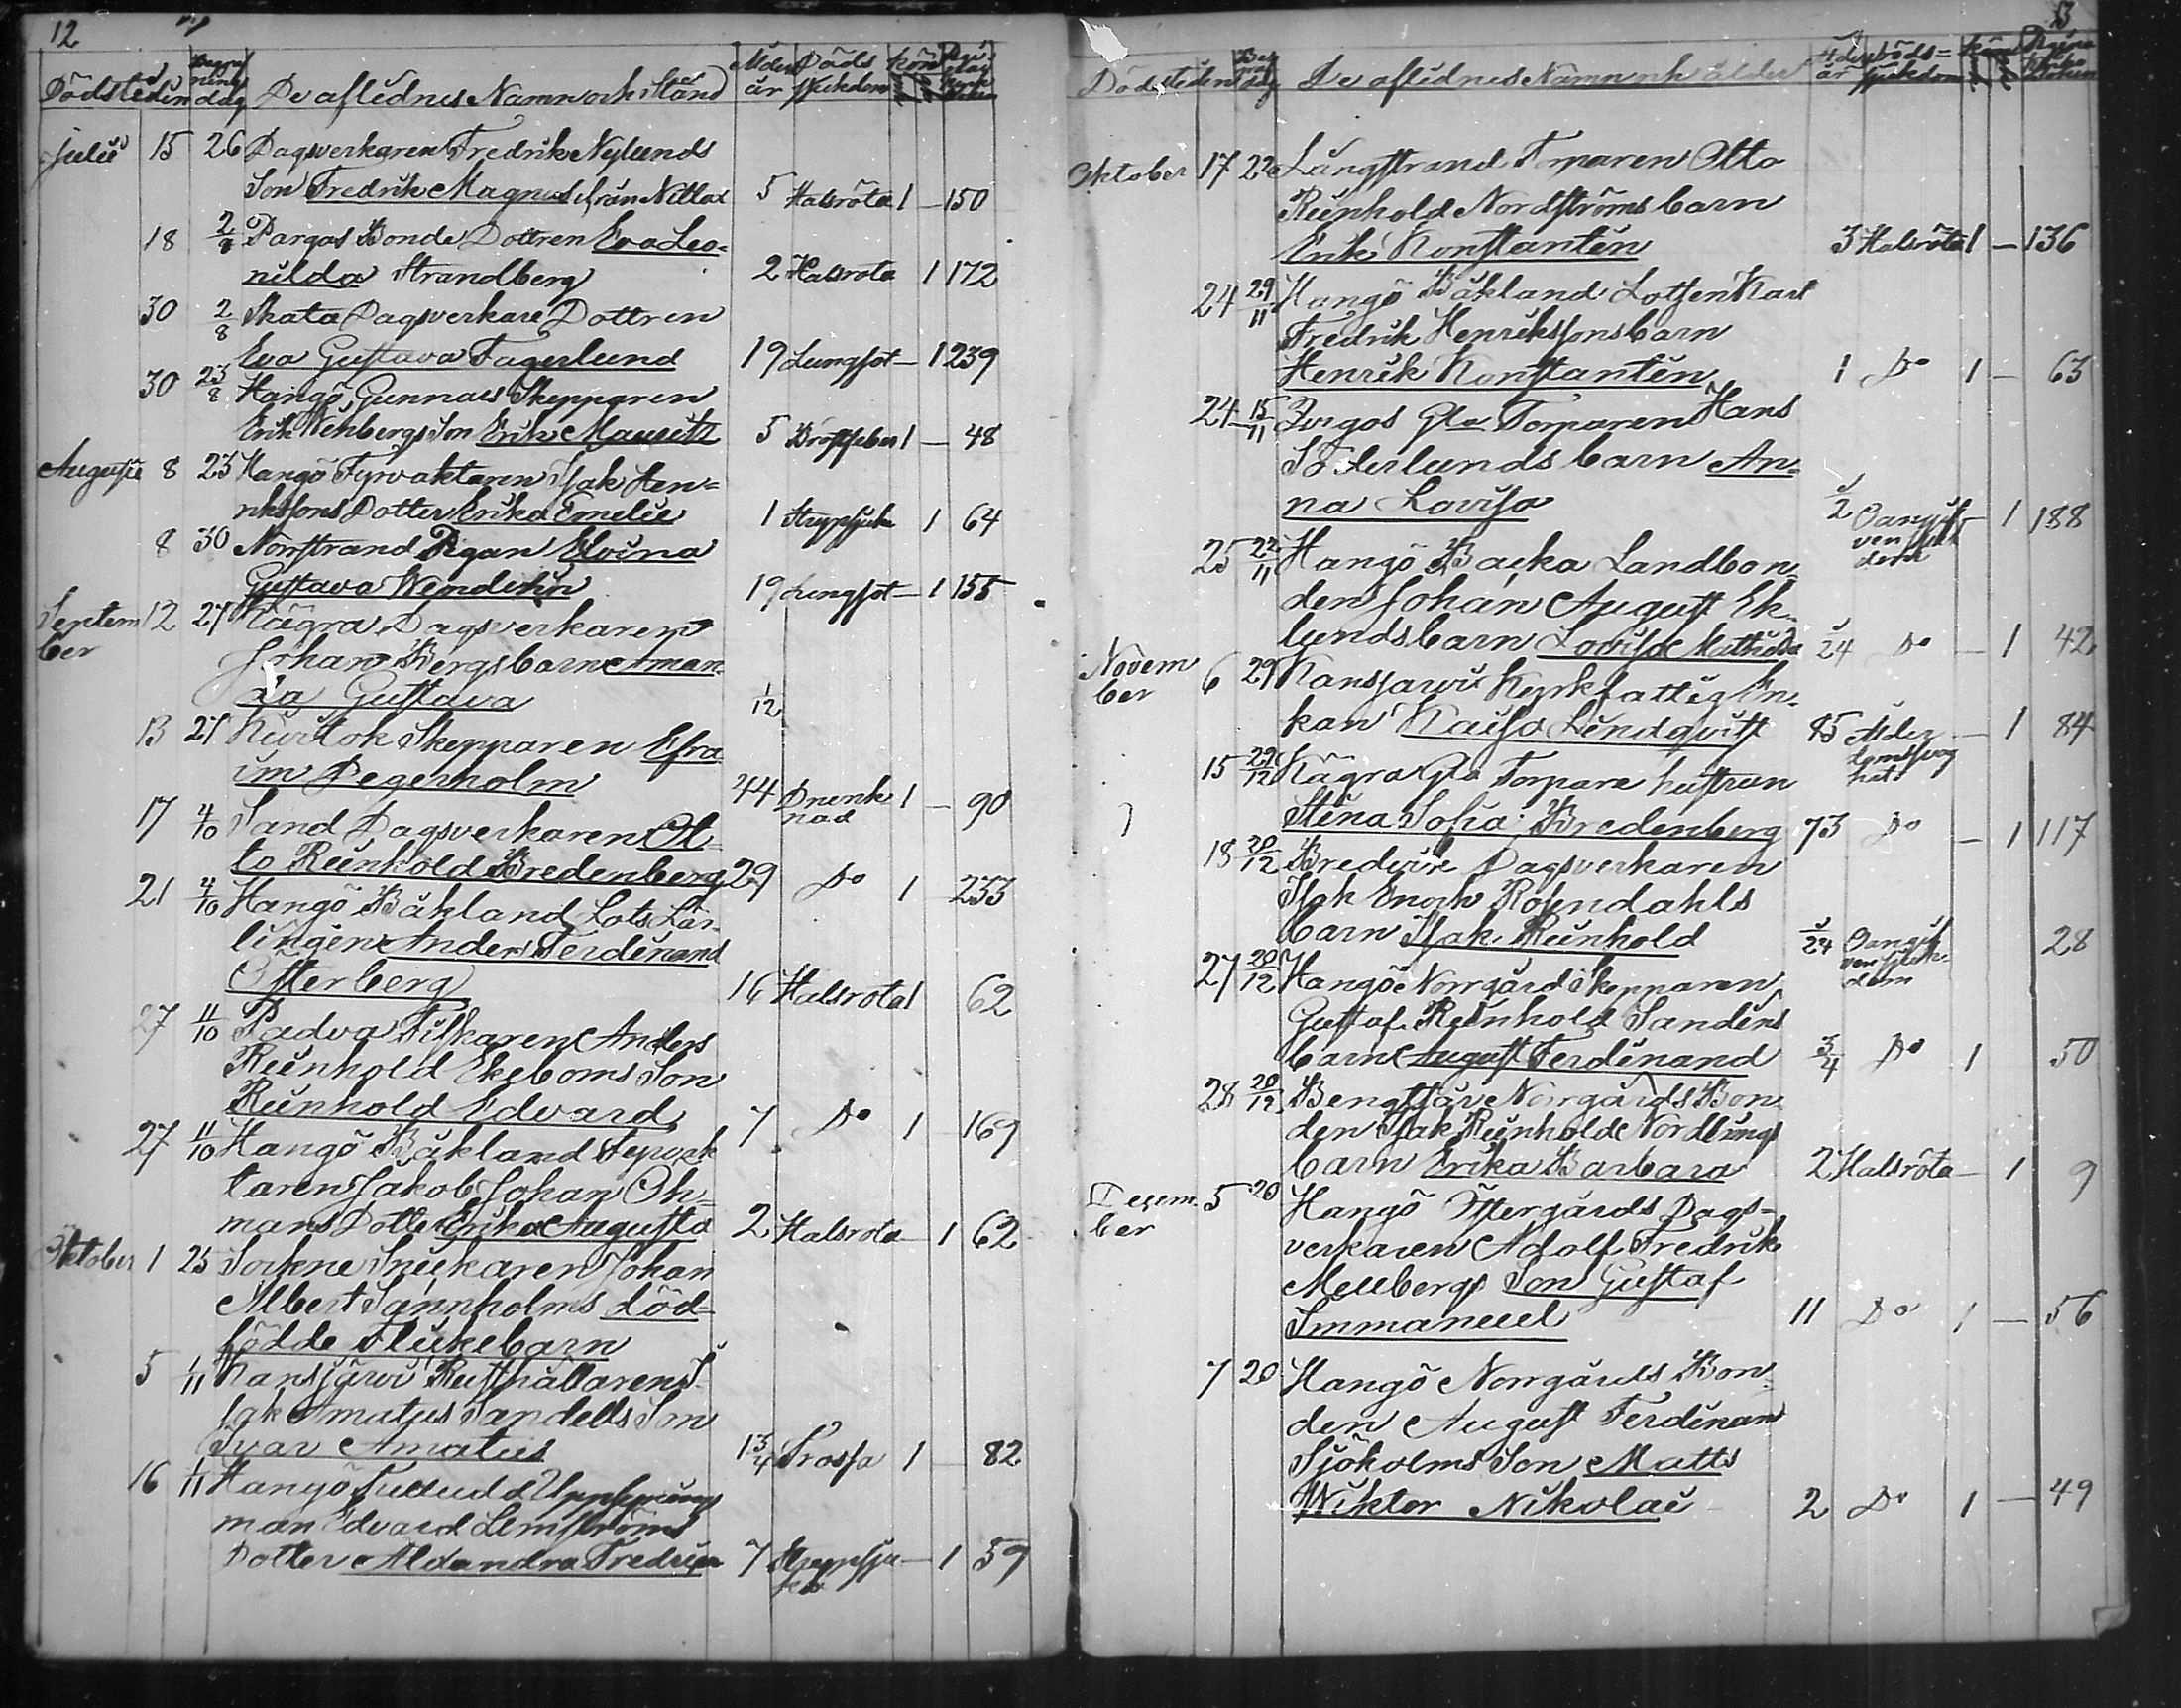 12
Dödstiden Begrafningsdag De aflidnes Namn och Stånd Ålder år Döds sjukdom kön
Julii 15 26 Dagsverkaren Fredrik Nylunds
Son Fredrik Magnus från 5 Halsröta 1 — 150
18 2/8 Pargas Bonde Dottren Eva Leo=
nilda Strandberg 2 Halsrota 1 172
30 2/8 Skata Dagsverkare Dottren
Eva Gustava Fagerlund 19 Lungsot — 1 239
30 23/8 Hangö Gunnars Skepparen
Erik Wehbergs Son Erik Mauritz 5 Bröstfeber 1 — 48
Augusti 8 23 Hangö Fyrvaktaren Isak Hen=
rikssons Dotter Erika Emelie 1 Strypsjuka 1 64
8 30 Norrstrand Pigan Elvina
Gustava Wendelin 19 Lungsot — 1 155
Septem 12 27 Kägra Dagsverkaren
ber Johan Bergs barn Aman
da Gustava 1/12
13 27 Skepparen Efra
im Degerholm 44 Drunk 1 — 90
nad
17 4/10 Sand Dagsverkaren Ot
to Reinhold Bredenberg 29 Do 1 — 233
21 4/10 Hangö Båkland Lots Lär
lingen Anders Ferdinand
Österberg 16 Halsrota 1 62
27 11/10 Padva Fiskaren Anders
Reinhold Ekeboms Son
Reinhold Edvard 7 Do 1 — 169
27 11/10 Hangö Båkland Fyrvak
taren Jakob Johan Öh=
mans Dotter Erika Augusta 2 Halsrota — 1 62
Oktober 1 25 Sockne Snickaren Johan
Albert Sannholms död=
födde Flickebarn
5 1/11 Kansjärvi Rusthållaren I
sak Amatus Sandells Son
Ivar Amatus 1 3/4 Trossa 1 — 82
16 1/11 Hangö Tulludd Uppsynings
man Edvard Lemströms
Dotter Aldandra Fredrica 7 Strypsju — 1 59
ka
13
Dödstiden Beg dag De aflidnes Namn och ålder Ålder år Döds= sjukdom kön
Oktober 17 22 Långstrand Torparen Otto
Reinhold Nordströms barn
Erik Konstantin 3 Halsröta 1 — 136
24 29/11 Hangö Båkland Lotsen Karl
Fredrik Henrikssons barn
Henrik Konstantin 1 Do 1 — 63
24 15/11 Gla Torparen Hans
Söderlunds barn An=
na Lovisa 1/2 Oangif — 1 188
ven sjuk
dom
25 22/11 Hangö Backa Landbon
den Johan August Ek
lunds barn Lovisa Mathilda 1/24 Do — 1 42
Novem 6 29 Kansjärvi Kyrkfattig En
ber kan Kaisa Lindqvist 85 Ålder — 1 84
domssvag
het
15 29/12 Kägra Gla Torpare hustrun
Stina Sofia Bredenberg 73 Do — 1 117
18 20/12 Bredvik Dagsverkaren
Isak Enoch Rosendahls
barn Isak Reinhold 1/24 Oangif 28
ven sjuk=
dom
27 20/12 Hangö Norrgård Skepparen
Gustaf Reinhold Sandéns
barn August Ferdinand 3/4 Do 1 50
28 20/12 Bengtsår Norrgårds Bon
den Isak Reinhold Nordlungs
barn Erika Barbara 2 Halsröta — 1 9
Decem 5 20 Hangö Östergårds Dags=
ber verkaren Adolf Fredrik
Mellbergs Son Gustaf
Immanuel 11 Do 1 — 56
7 20 Hangö Norrgårds Bon=
den August Ferdinand
Sjöholms Son Matts
Wikter Nikolai 2 Do 1 — 49